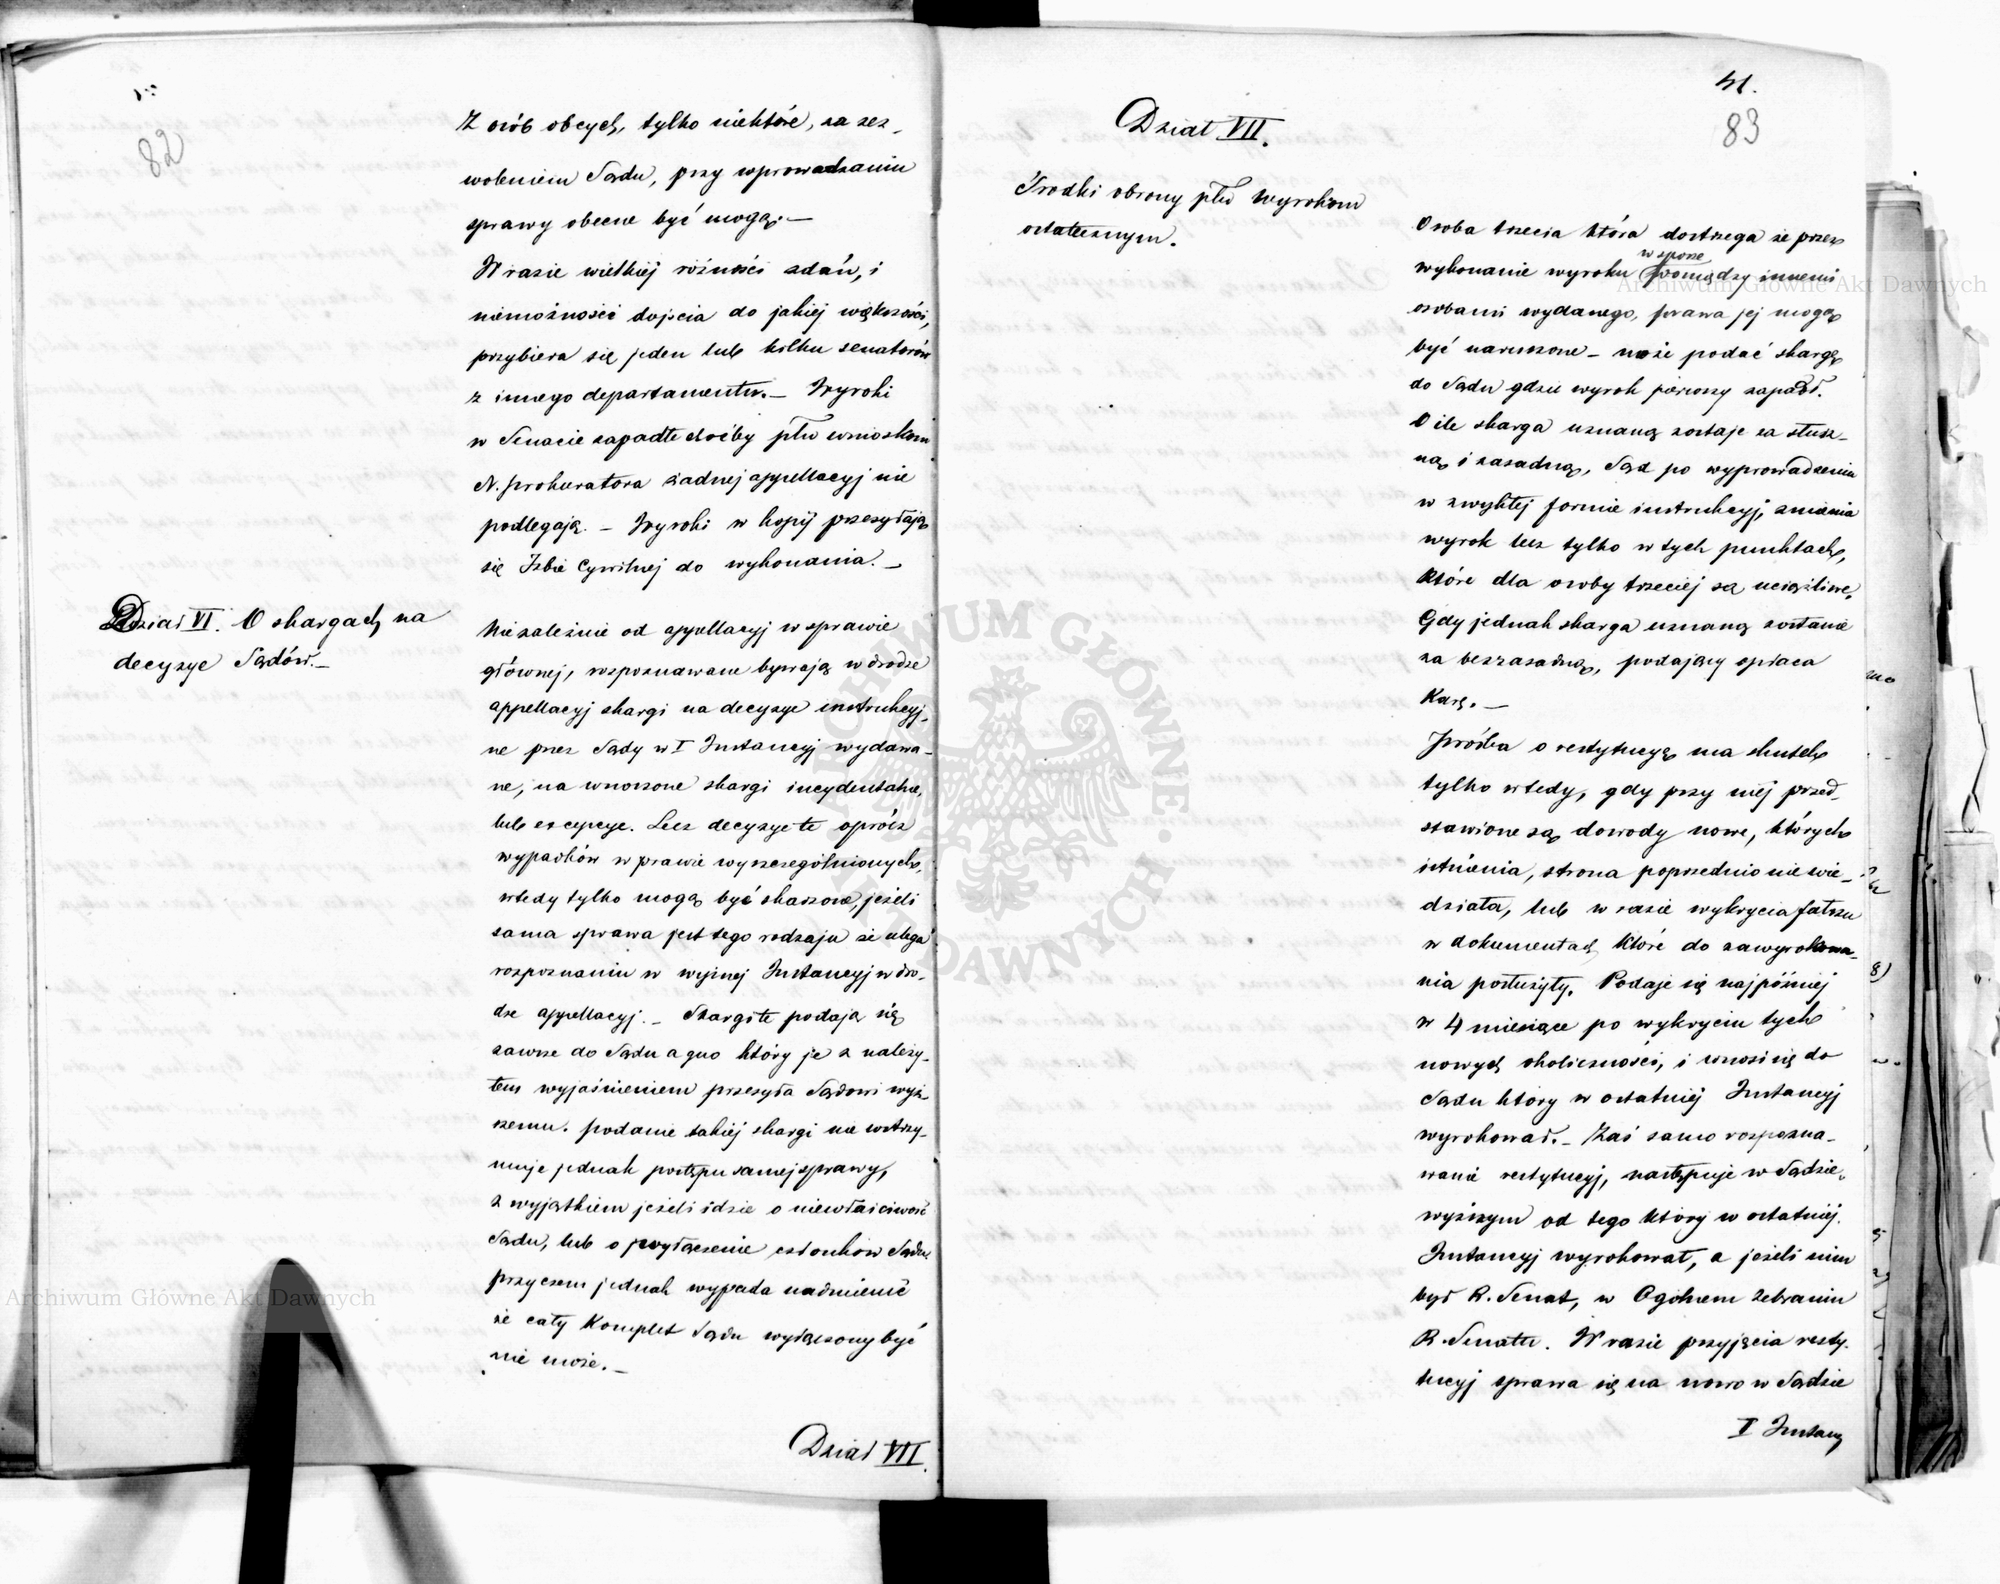 82
Z osób obcych, tylko niektóre, za zez-
woleniem Sądu, przy wprowadzaniu
sprawy obecne być mogą. —
W razie wielkiej różności zdań, i
niemożności dojscia do jakiej większości,
przybiera się jeden lub kilku senatorów
z innego departamentu. — Wyroki
w Senacie zapadłe choćby płw wnioskom
N. prokuratora żadnej appellacyj nie
podlegają. — Wyroki w kopij przesyłają
się Izbie Cywilnej do wykonania. —
Dział VI. O skargach na
decyzye Sądów. —
Niezależnie od appellacyj w sprawie
głównej, rozpoznawane bywają w drodze
appellacyj skargi na decyzye instrukcyj-
ne przez Sądy w I Instancyj wydawa-
ne, na wnoszone skargi incydentalne,
lub excypcye. Lecz decyzye te oprócz
wypadków w prawie wyszczególnionych,
wtedy tylko mogą być skarżone, jeżeli
sama sprawa jest tego rodzaju że ulega
rozpoznaniu w wyżnej Instancyj w dro-
dze appellacyj. — Skargi te podają się
zawsze do Sądu a quo który je z należy-
tem wyjaśnieniem przesyła Sądowi wyż-
szemu. podanie takiej skargi nie wstrzy-
muje jednak postępu samej sprawy,
z wyjątkiem jeżeli idzie o niewłaściwość
Sądu, lub o wyłączenie członków Sądu
przyczem jednak wypada nadmienić
że cały Komplet Sądu wyłączony być
nie może. —
Dział VII.
41.
83
Dział VII.
Środki obrony płw wyrokom
ostatecznym.
Osoba trzecia która dostrzega że przez
w sporze
wykonanie wyroku pomiędzy innemi
osobami wydanego, prawa jej mogą
być naruszone — może podać skargę
do Sądu gdzie wyrok pierwszy zapadł.
O ile skarga uznaną zostaje za słusz-
ną i zasadną, Sąd po wyprowadzeniu
w zwykłej formie instrukcyj, zmienia
wyrok lecz tylko w tych punktach,
które dla osoby trzeciej są uciążliwe.
Gdy jednak skarga uznaną zostanie
za bezzasadną, podający opłaca
Karę. —
Prośba o restytucyą ma skutek
tylko wtedy, gdy przy niej przed-
stawione są dowody nowe, których
istnienia, strona poprzednio nie wie-
działa, lub w razie wykrycia fałszu
w dokumentach które do zawyrokowa-
nia posłużyły. Podaje się najpóźniej
w 4 miesiące po wykryciu tych
nowych okoliczności, i wnosi się do
Sądu który w ostatniej Instancyj
wyrokował. — Zaś samo rozpozna-
wanie restytucyj, następuje w Sądzie
wyższym od tego który w ostatniej
Instancyj wyrokował, a jeżeli nim
był R. Senat, w Ogólnem Zebraniu
R. Senatu. W razie przyjęcia resty-
tucyj sprawa się na nowo w Sądzie
I Instancy
Archiwum Główne Akt Dawnych
Archiwum Główne Akt Dawnych
ARCHIWUM GŁÓWNE AKT DAWNYCH